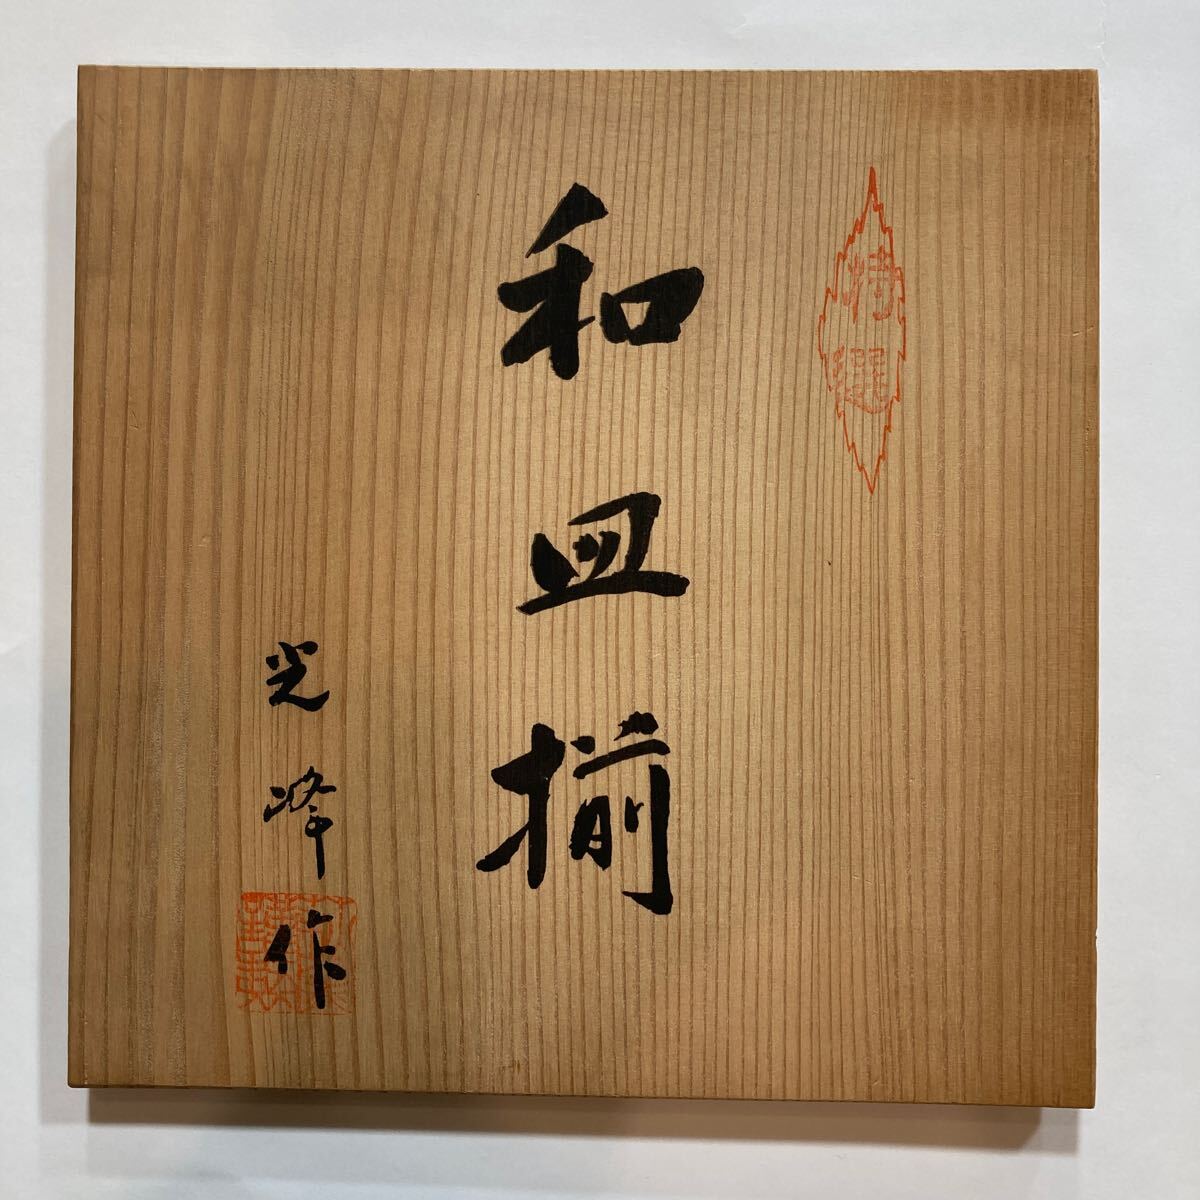 特選
和皿揃
光峰作